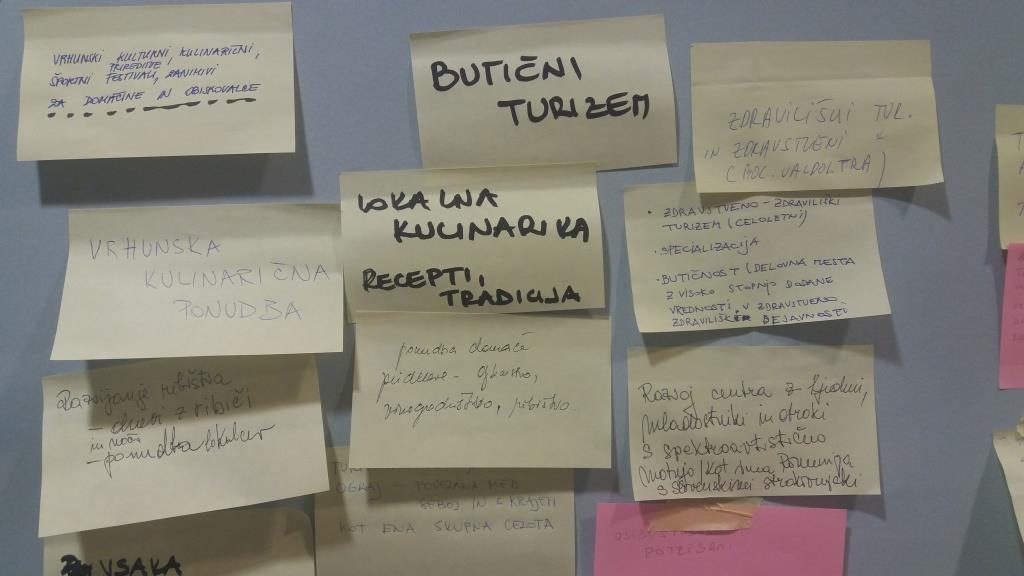 VRHUNSKI KULTURNI, KULINARIČNI,
PRIREDITVE,
ŠPORTNI FESTIVALI, ZANIMIVI
ZA DOMAČINE IN OBISKOVALCE
BUTIČNI
TURIZEM
ZDRAVILIŠKI TUR.
IN ZDRAVSTVENI
(BOL. VALDOLTRA)
LOKALNA
KULINARIKA
RECEPTI,
TRADICIJA
VRHUNSKA
KULINARIČNA
PONUDBA
• ZDRAVSTVENO - ZDRAVILIŠKI
TURIZEM (CELOLETNI)
• SPECIALIZACIJA
• BUTIČNOST (DELOVNA MESTA
Z VISOKO STOPNJO DODANE
VREDNOSTI V ZDRAVSTVENO
ZDRAVILIŠKI DEJAVNOSTI
ponudba domače
pridelave - oljkarstvo,
vinogradništvo, ribištvo
Razvijanje ribištva
- dnevi z ribiči
in noči
- ponudba lokalcev
Razvoj centra z ljudmi,
mladostniki in otroki
s spektroavtistično
motnjo / kot ima Pomurija
s slovenskimi strokovnjaki
OGRAJ - POVEZAVA MED
SEBOJ IN S KRAJEM
KOT ENA SKUPNA CELOTA
VSAKA
POTREBAMI